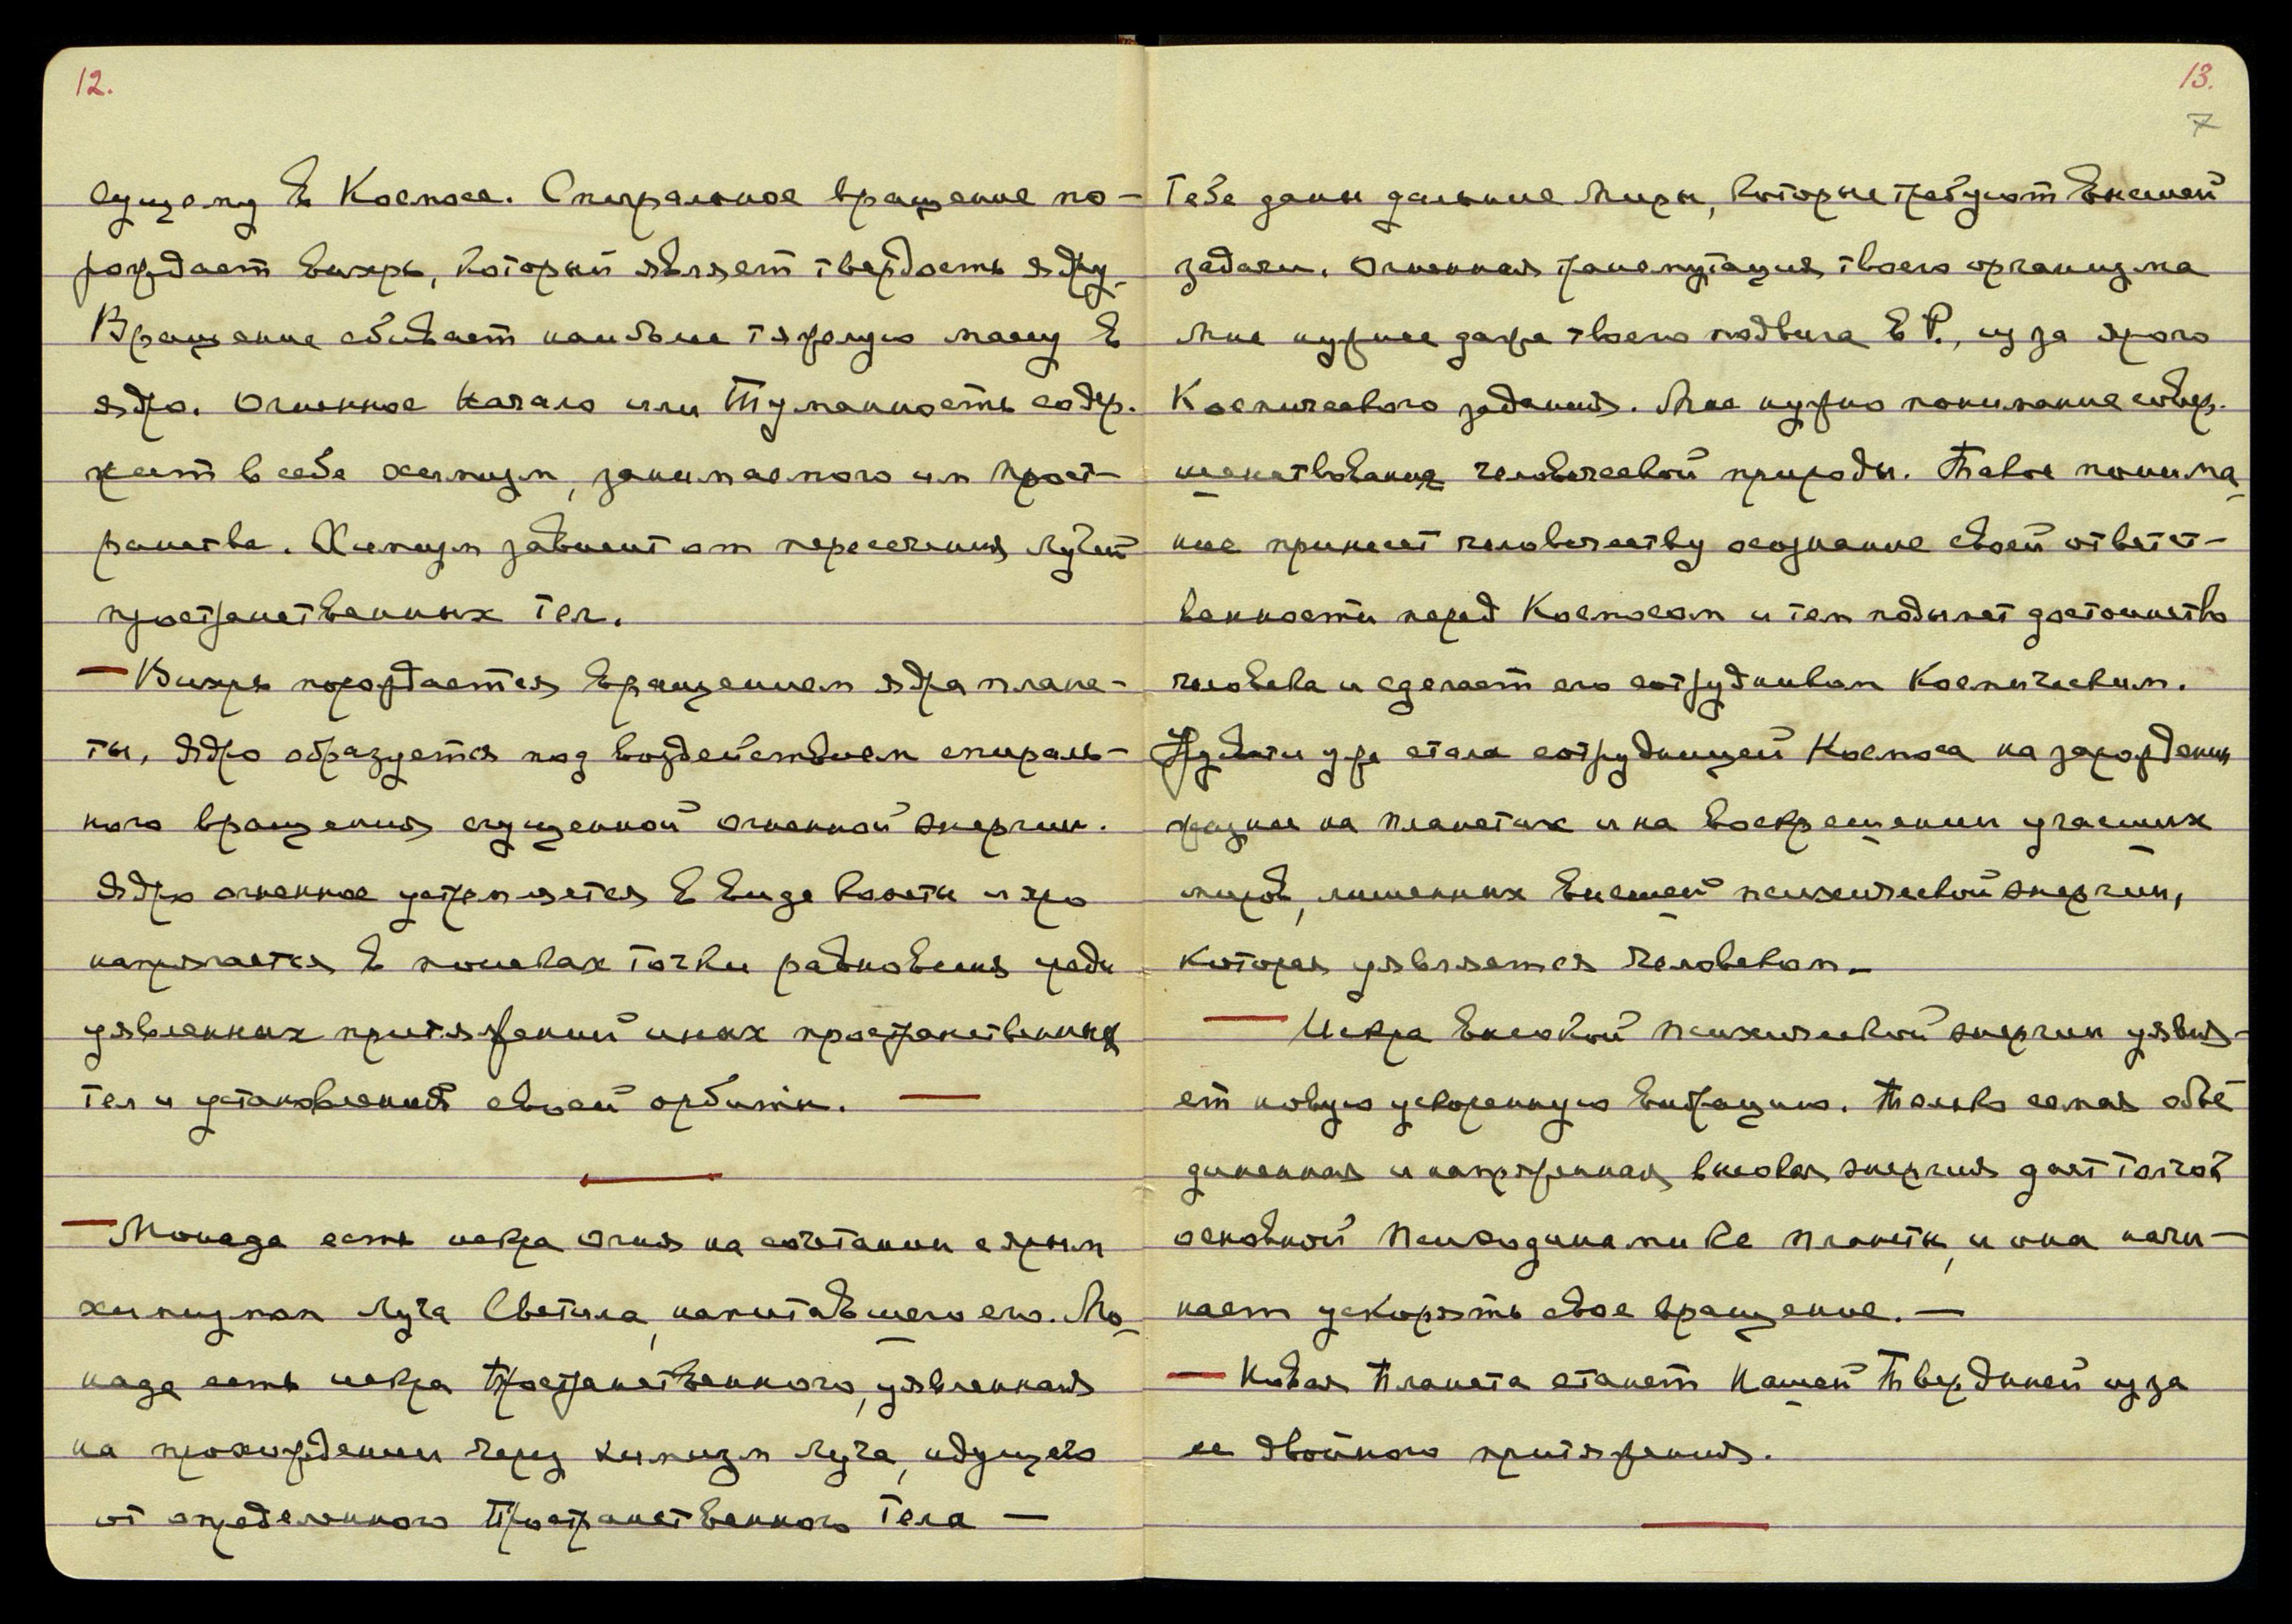 12.
сущему в Космосе. Спиральное вращение по-
рождает вихрь, который являет твердость ядру.
Вращение сбивает наиболее тяжелую массу в
ядро. Огненное Начало или Туманность содер-
жит в себе химизм, занимаемого им прост-
ранства. Химизм зависит от пересечения лучей
пространственных тел.
— Вихрь порождается вращением ядра плане-
ты, Ядро образуется под воздействием спираль-
ного вращения сгущенной огненной энергии.
Ядро огненное устремляется в виде кометы и яро
напрягается в поисках точки равновесия среди
уявленных притяжений иных пространственных
тел и установления своей орбиты. —
— Монада есть искра огня на сочетании с ярым
химизмом луча Светила, напитавшего его. Мо-
нада есть искра Пространственного, уявленная
на прохождении через химизм луча, идущего
от определенного Пространственного Тела —
13.
7
Тебе даны дальние Миры, которые требуют внешней
задачи. Огненная трансмутация твоего организма
Мне нужнее даже твоего подвига в Р., из за ярого
Космического задания. Мне нужно понимание совер-
шенствования человеческой природы. Такое понима-
ние принесет человечеству осознание своей ответст-
венности перед Космосом и тем подымет достоинство
человека и сделает его сотрудником Космическим.
Урусвати уже стала сотрудницей Космоса на зарождении
жизни на планетах и на воскрешении угасших
миров, лишенных высшей психической энергии,
которая уявляется человеком.
— Искра высокой психической энергии уявля-
ет новую ускоренную вибрацию. Только самая объе
диненная и напряженная высокая энергия дает толчок
основной Психодинамике планеты, и она начи-
нает ускорять свое вращение. —
— Новая Планета станет Нашей Твердыней из за
ее двойного притяжения.